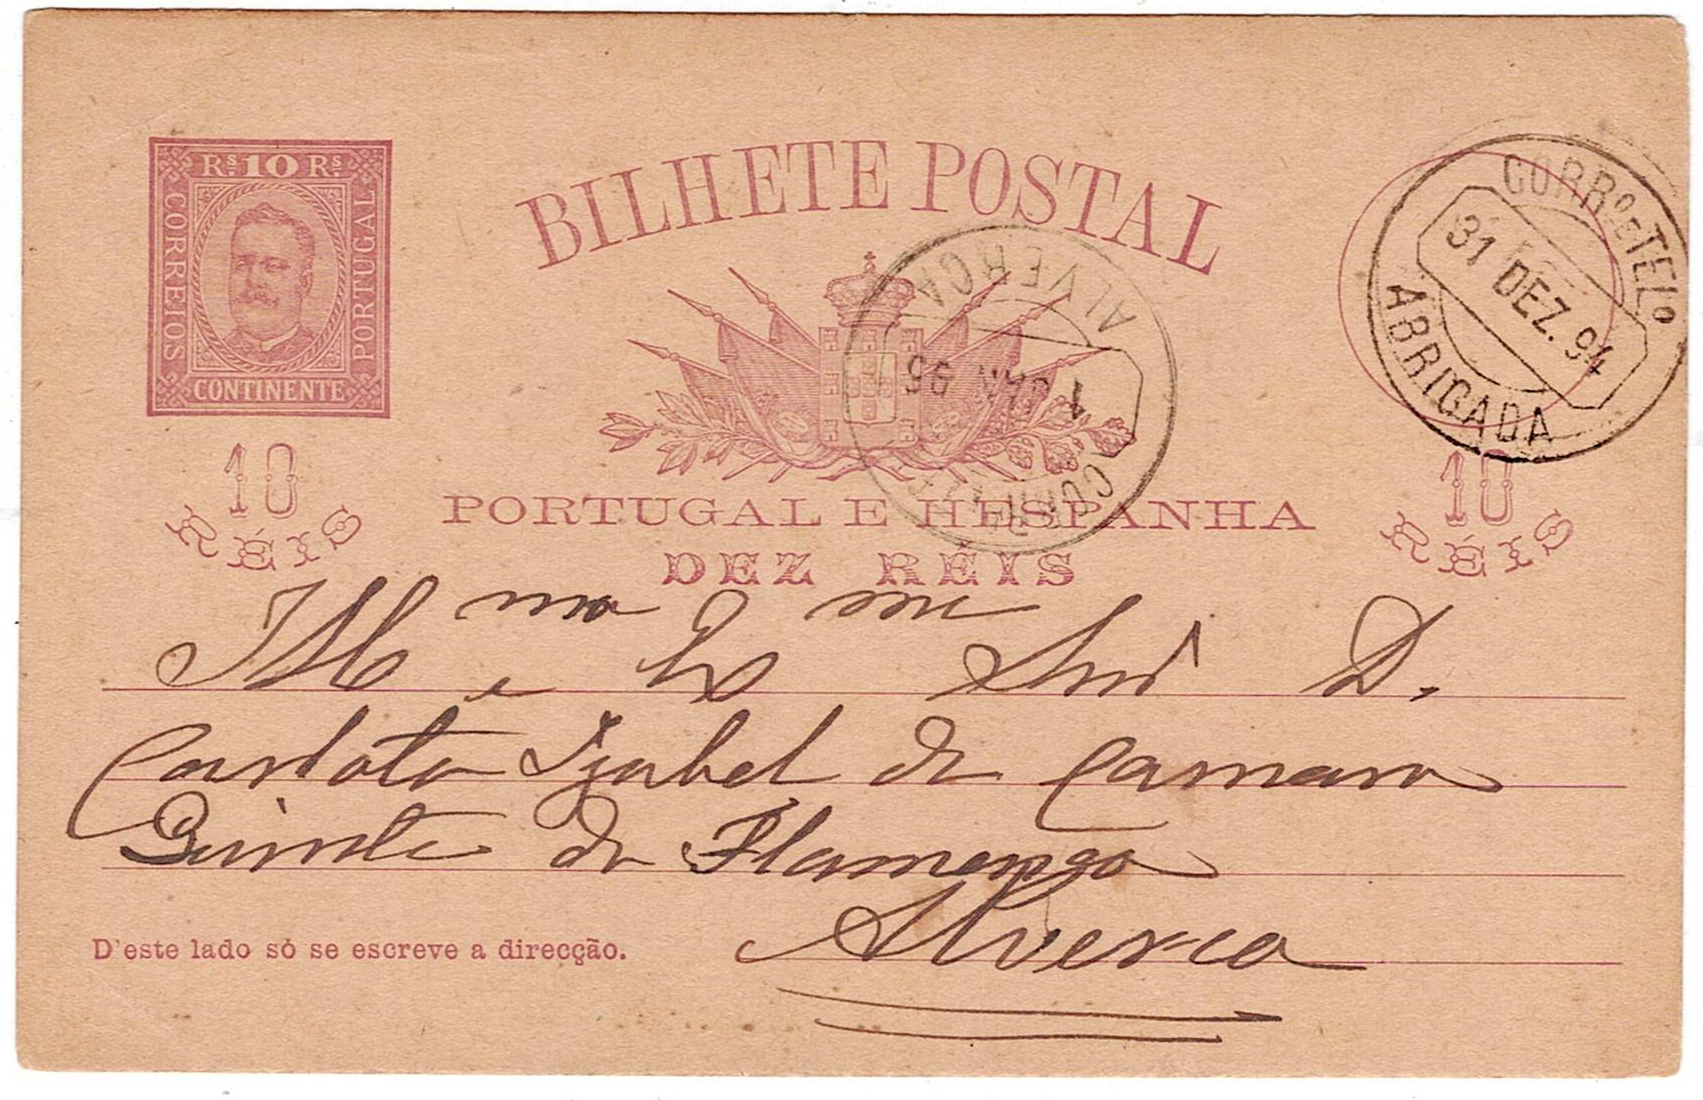 Rs. 10 Rs.
CORREIOS
PORTUGAL
CONTINENTE
BILHETE POSTAL
CORRO E TELO
31 DEZ. 94
ABRIGADA
ALVERCA
1 JAN 95
10
RÉIS
10
RÉIS
PORTUGAL E HESPANHA
DEZ RÉIS
Ill ma e Ex ma Snrª D.
Carlota Izabel da Camara
Quinta do Flamengo
Alverca
D'este lado só se escreve a direcção.